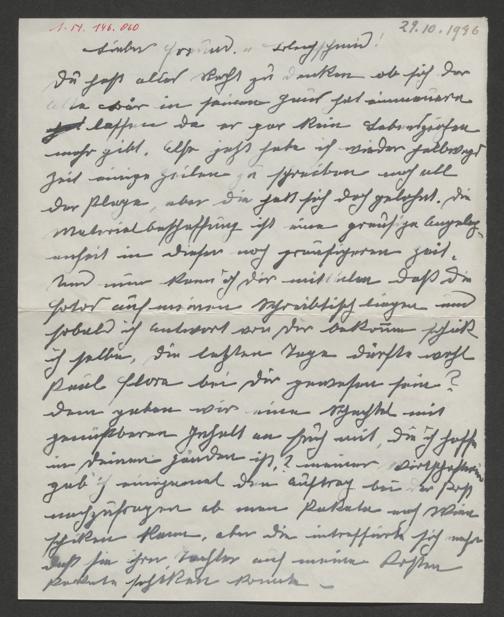 1.N. 146.060
29.10.1936
Lieber Freund. u Blechschmid!
Du hast alles Recht zu denken ob sich der
alte in seinem Haus hat einmauern
lassen da er gar kein Lebenszeichen
mehr gibt. Also jetzt habe ich wieder halbwegs
Zeit einige Zeilen zu schreiben nach all
der Plage, aber die hat sich doch gelohnt. Die
Materialbeschaffung ist eine grausige Angeleg-
enheit in dieser noch grausigeren Zeit.
Und nun kann ich Dir mitteilen daß die
Fotos auf meinem Schreibtisch liegen und
sobald ich Antwort von Dir bekomme schick
ich selbe, die letzten Tage dürfte wohl
Paul Flora bei Dir gewesen sein?
dem gaben wir eine Schachtel mit
Inhalt an Euch mit, die ich hoffe
in Deinen Händen ist? meiner Wirtschafterin
gab ich einigemal den Auftrag bei der Post
nachzufragen ob man Pakete nach Wien
schiken kann, aber die
daß sie ihrer Tochter auf meine Kosten
Pakete schiken konnte